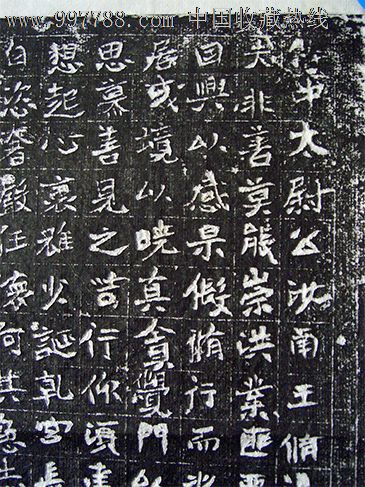 www.997788.com 中国收藏热线
中太尉公汝南王脩
夫非善莫能崇洪業匪
興以感果假脩行而
居或境以曉真貪覺門
思慕善見之行你須
想起心衷雖少誕乹宮長
自恣嚴任何其